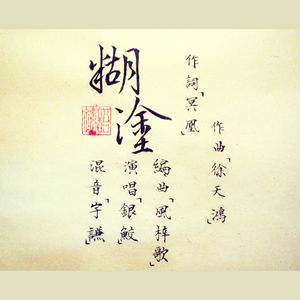 糊塗
作詞「冥凰」
作曲「徐天鴻」
編曲「風梓歌」
演唱「銀鮫」
混音「宇讌」